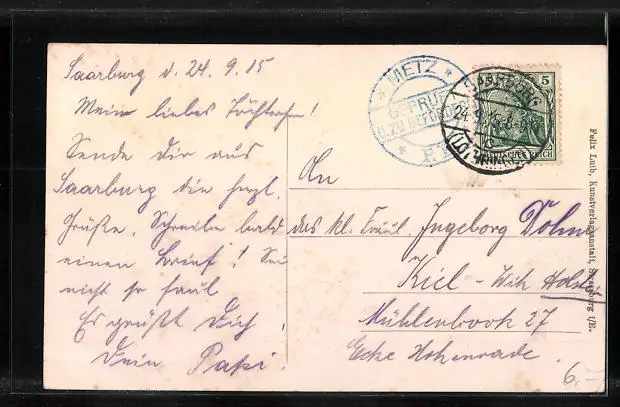 Saarburg d. 24. 9. 15
Mein liebes Töchterchen!
Sende Dir aus
Saarburg die herzl.
Grüße. Schreibe bald
einen Brief! Sei
nicht so faul
Es grüßt Dich
Dein Papi.
METZ
GEPRÜFT
U. ZU BEFÖRD.
SAARBURG
24.9.15.
(LOTHRINGEN)
5
DEUTSCHES REICH
An
das kl. Fräul. Ingeborg Döhne
Kiel - Wik Holstein
Mühlenbrook 27
Ecke Hohenrade.
Felix Luib, Kunstverlagsanstalt, Strassburg i/E.
6.-